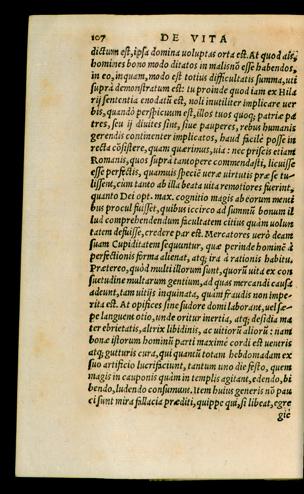 107 DE VITA
dictum est, ipsa domina voluptas orta est. At quod ais,
homines bono modo ditatos in malis nõ esse habendos,
in eo, inquam, modo est totius difficultatis summa, uti
suprà demonstratum est: tu proinde quod iam ex Hila
rij sententia enodatũ est, noli inutiliter implicare uer
bis, quandò perspicuum est, illos tuos quoq; patriæ pa
tres, seu ij diuites sint, siue pauperes, rebus humanis
gerendis continenter implicatos, haud facilè posse in
recta cõsistere, quam quærimus, uia: nec priscis etiam
Romanis, quos suprà tantopere commendasti, licuisse
esse perfectis, quamuis speciẽ ueræ uirtutis præ se tu-
lissent, cùm tanto ab illa beata uita remotiores fuerint,
quanto Dei opt. max. cognitio magis ab eorum menti
bus procul fuisset, quibus iccirco ad summũ bonum il
lud comprehendendum facultatem citius quàm uolun
tatem defuisse, credere par est. Mercatores uerò deam
suam Cupiditatem sequuntur, quæ perinde hominẽ à
perfectionis forma alienat, atq; ira à rationis habitu.
Prætereo, quòd multi illorum sunt, quorũ uita ex con
suetudine multarum gentium, ad quas mercandi causa
adeunt, tam uitijs inquinata, quàm fraudis non impe-
rita est. At opifices sine sudore domi laborant, uel sæ-
pe languent otio, unde oritur inertia, atq; desidia ma
ter ebrietatis, altrix libidinis, ac uitiorũ aliorũ: nam
bonæ istorum hominũ parti maximè cordi est ueneris
atq; gutturis cura, qui quantũ totam hebdomadam ex
suo artificio lucrifaciunt, tantum uno die festo, quem
magis in cauponis quàm in templis agitant, edendo, bi
bendo, ludendo consumunt. Item huius generis nõ pau
ci sunt mira fallacia præditi, quippe qui, si libeat, egre
giè